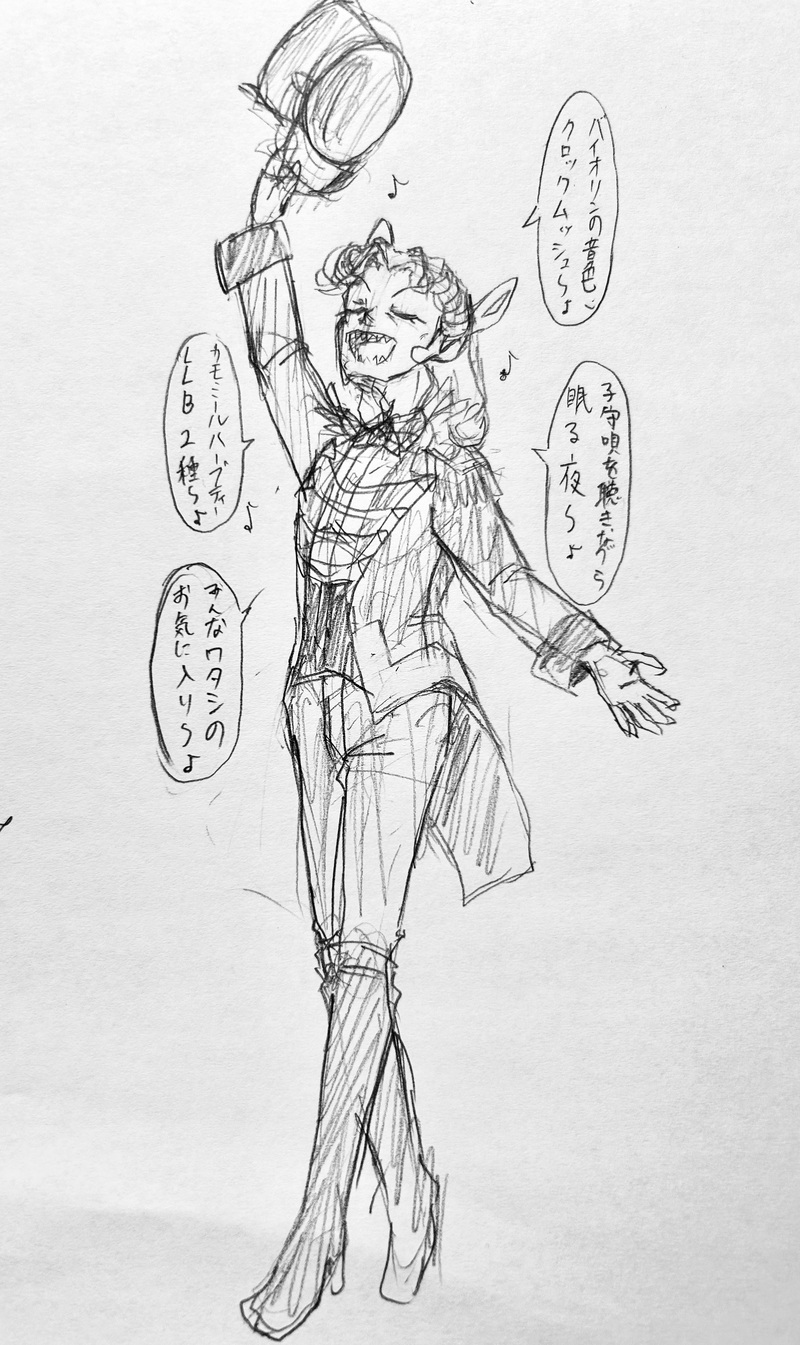 バイオリンの音色と
クロックムッシュ〜♪
子守唄を聴きながら
眠る夜〜♪
カモミールハーブティー
LLB2種〜♪
みんなワタシの
お気に入り〜♪